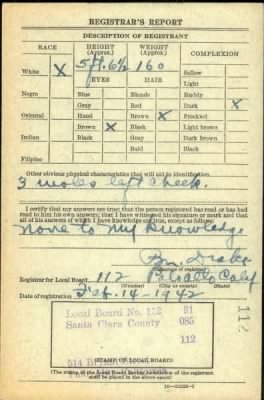 REGISTRAR'S REPORT
DESCRIPTION OF REGISTRANT
RACE HEIGHT (Approx.) WEIGHT (Approx.) COMPLEXION
White X 5 ft. 6½ 160 Sallow
EYES HAIR Light
Negro Blue Blonde Ruddy
Gray Red Dark X
Oriental Hazel Brown X Freckled
Brown X Black Light brown
Indian Black Gray Dark brown
Bald Black
Filipino
Other obvious physical characteristics that will aid in identification
3 moles left cheek.
I certify that my answers are true; that the person registered has read or has had
read to him his own answers; that I have witnessed his signature or mark and that
all of his answers of which I have knowledge are true, except as follows:
None to my Knowledge
Drake
Registrar for Local Board 112 Palo Alto Calif
(Number) (City or county) (State)
Date of registration Feb. 14-1942
112
Local Board No. 112 91
Santa Clara County 085
112
514
(STAMP OF LOCAL BOARD)
(The stamp of the Local Board having jurisdiction of the registrant